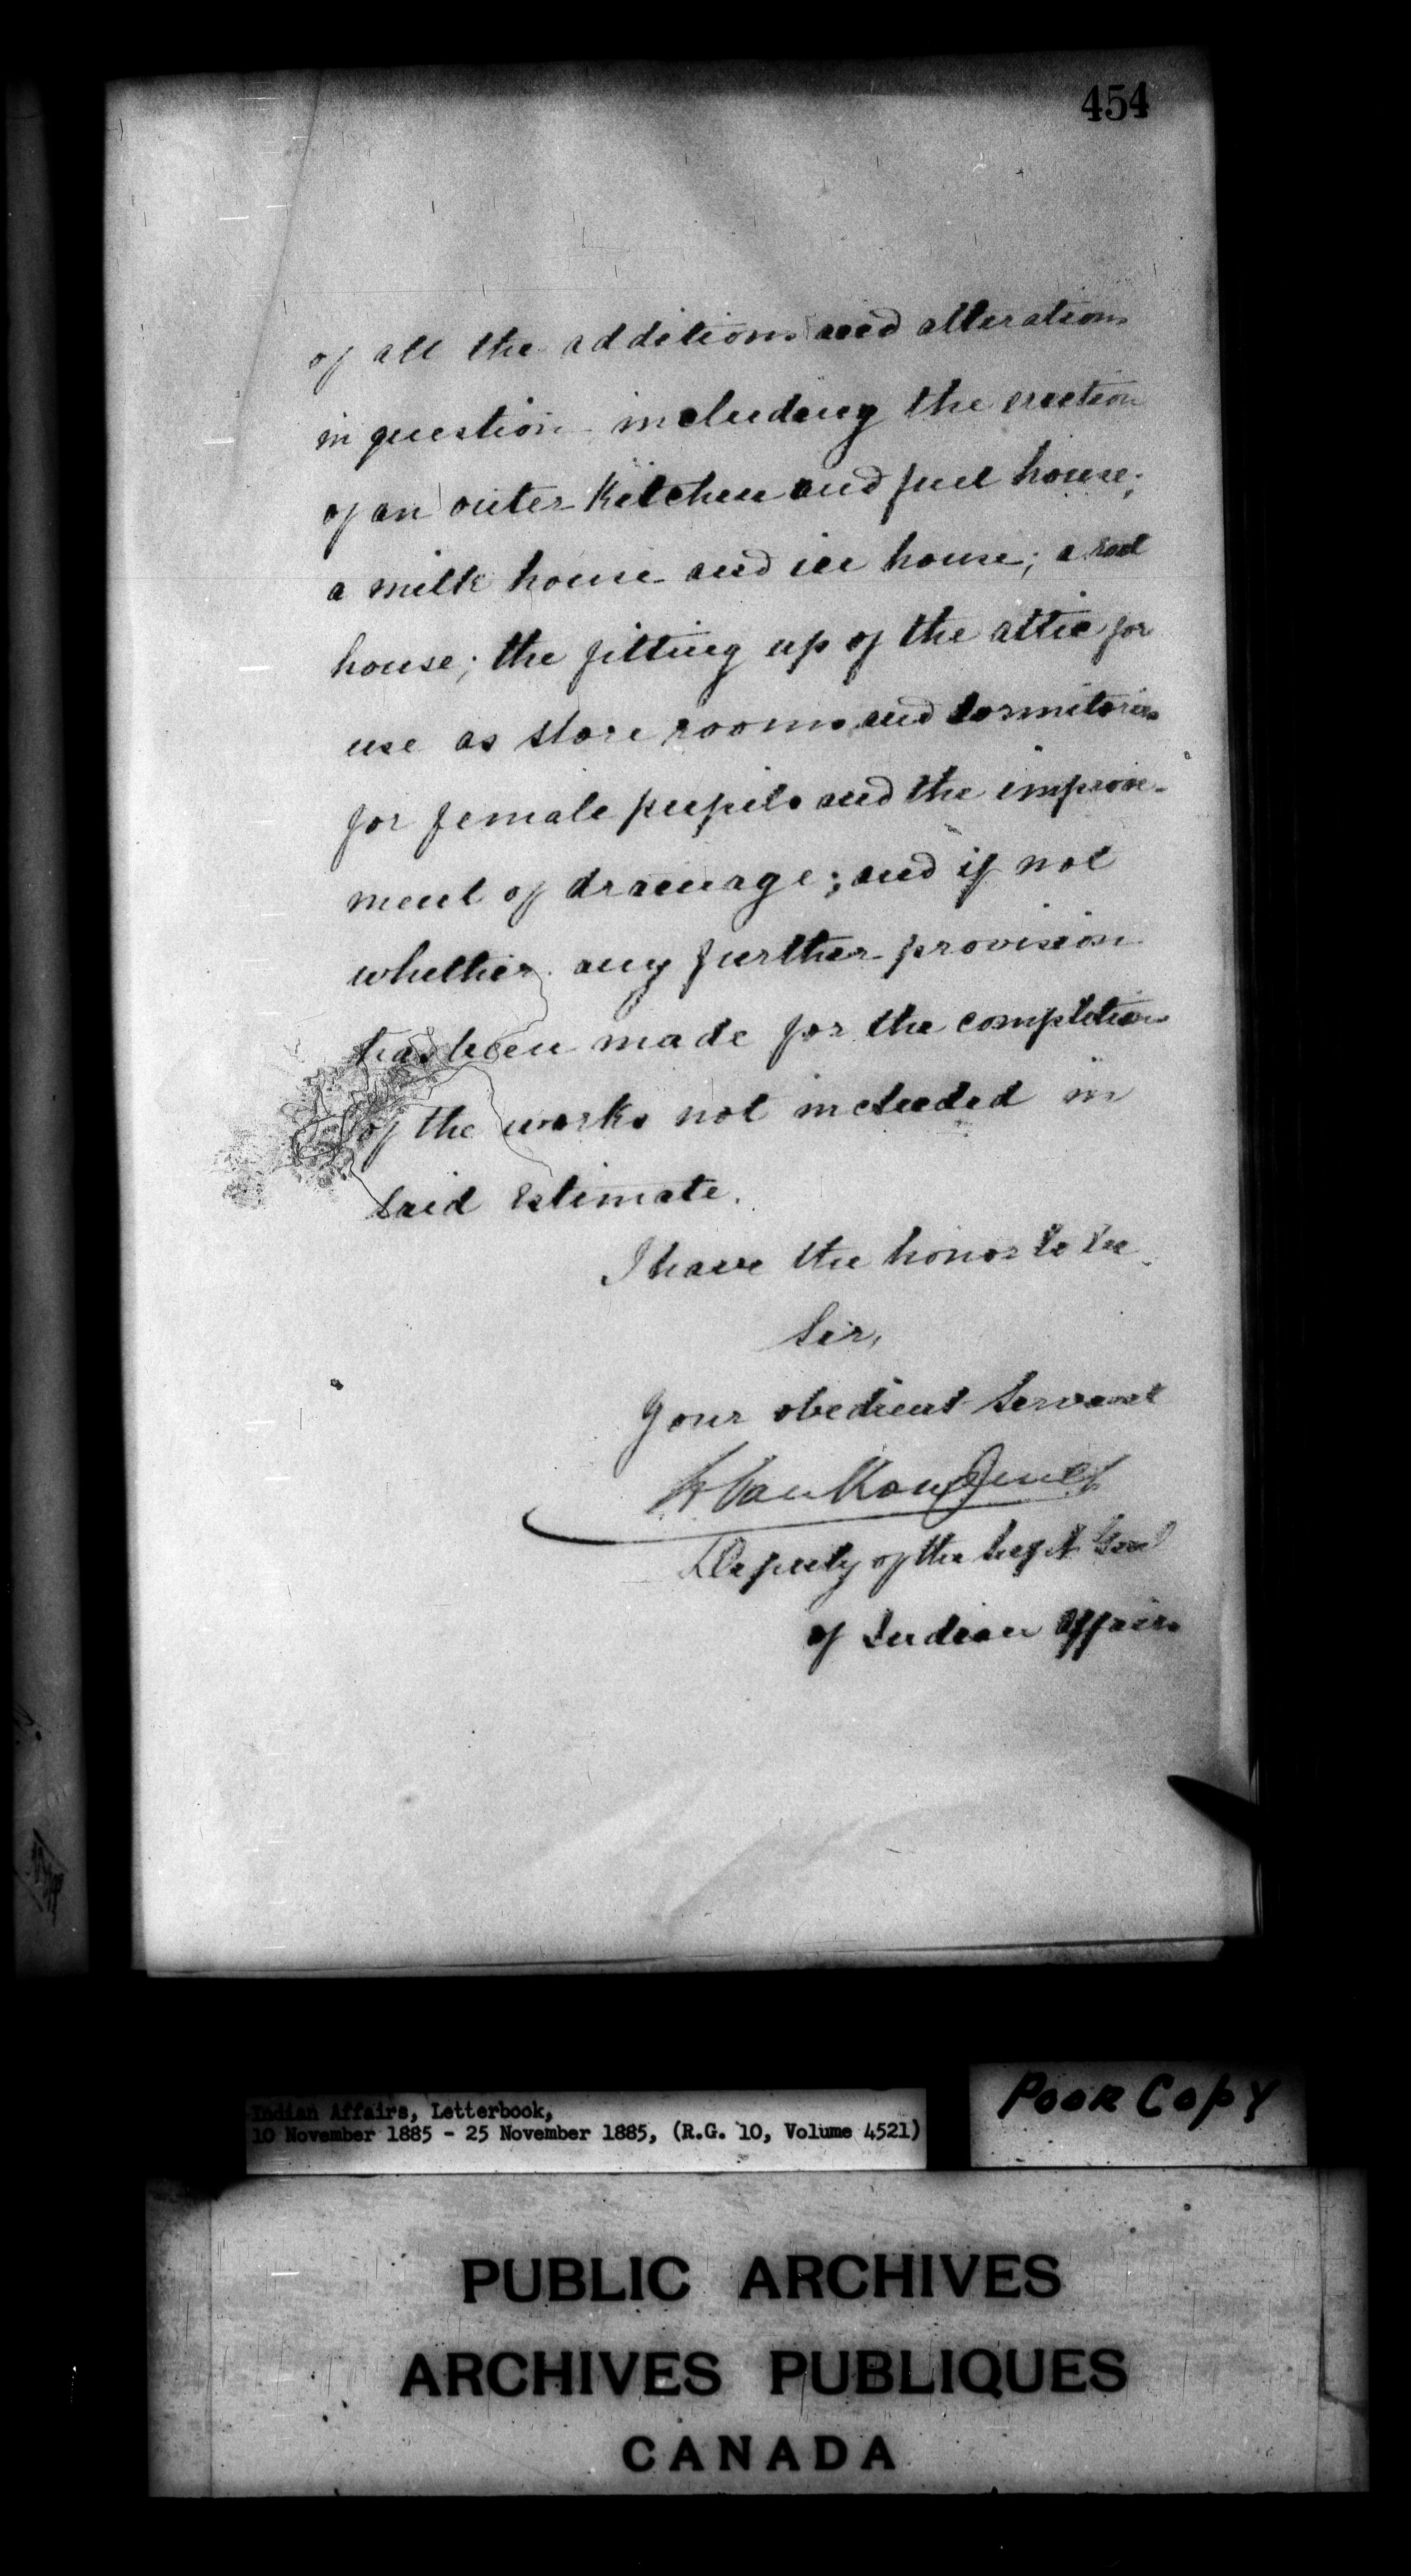 454
of all the additions and alterations
in question including the erection
of an outer Kitchen and fuel house;
a milk house and ice house; a root
house; the fitting up of the attic for
use as store rooms and dormitories
for female pupils and the improve-
ment of drainage; and if not
whether any further provision
has been made for the completion
of the works not included in
said Estimate.
I have the honor to be
Sir,
Your obedient servant
L VanKoughnet
Deputy of the Supt Genl
of Indian Affairs
Indian Affairs, Letterbook,
10 November 1885 - 25 November 1885, (R.G. 10, Volume 4521)
Poor Copy
PUBLIC ARCHIVES
ARCHIVES PUBLIQUES
CANADA